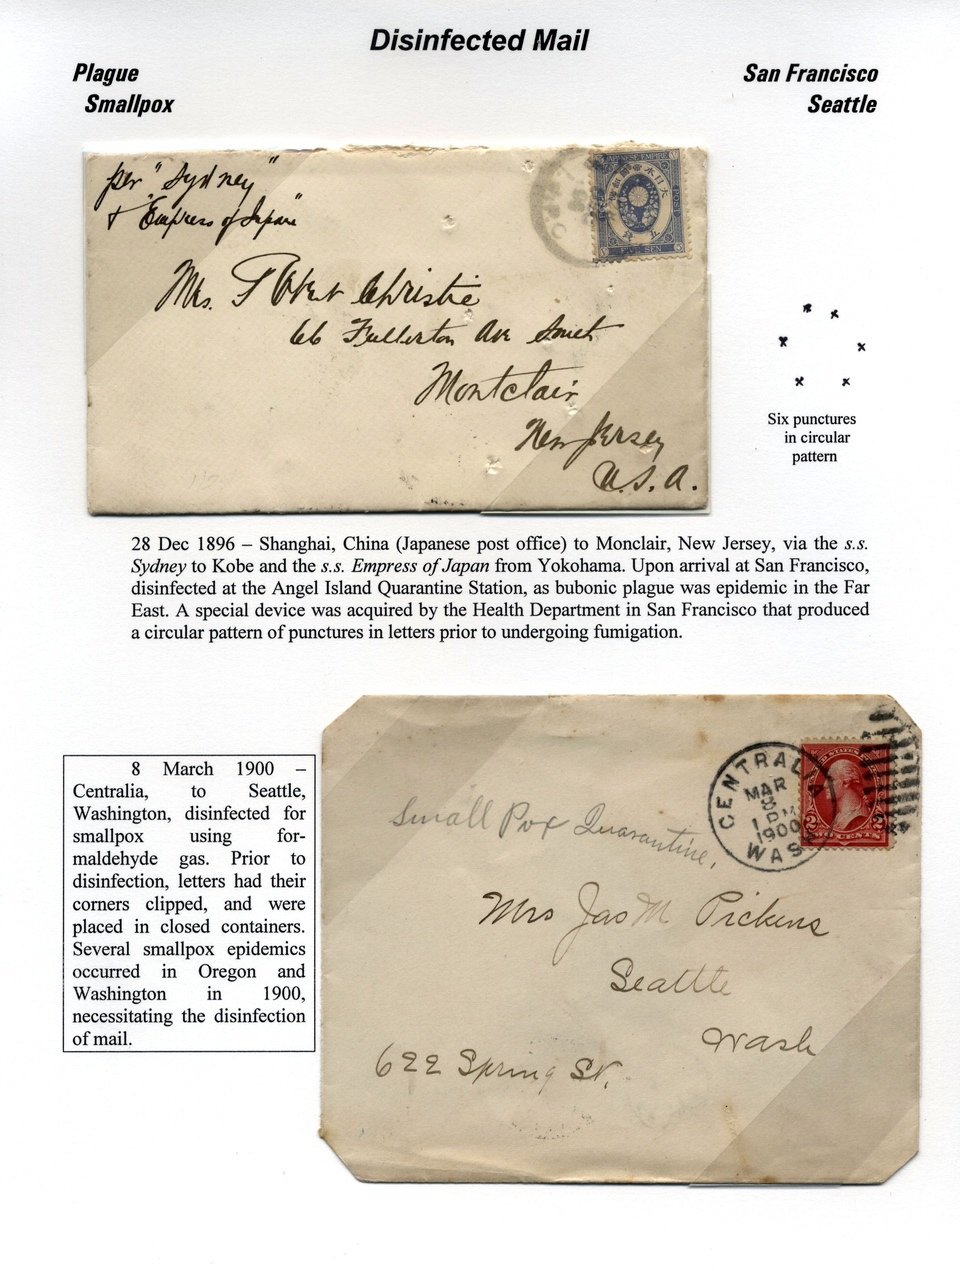 Disinfected Mail
Plague
Smallpox
San Francisco
Seattle
per "Sydney"
& "Empress of Japan"
JAPANESE EMPIRE
SEN
Mrs. Christie
66 Fullerton Ave South
Montclair
New Jersey
U.S.A.
Six punctures
in circular
pattern
28 Dec 1896 – Shanghai, China (Japanese post office) to Monclair, New Jersey, via the s.s.
Sydney to Kobe and the s.s. Empress of Japan from Yokohama. Upon arrival at San Francisco,
disinfected at the Angel Island Quarantine Station, as bubonic plague was epidemic in the Far
East. A special device was acquired by the Health Department in San Francisco that produced
a circular pattern of punctures in letters prior to undergoing fumigation.
8 March 1900 –
Centralia, to Seattle,
Washington, disinfected for
smallpox using for-
maldehyde gas. Prior to
disinfection, letters had their
corners clipped, and were
placed in closed containers.
Several smallpox epidemics
occurred in Oregon and
Washington in 1900,
necessitating the disinfection
of mail.
CENTRALIA
MAR
8
1 PM
1900
WASH
Small Pox Quarantine,
Mrs Jas M Pickens
Seattle
Wash
622 Spring St.